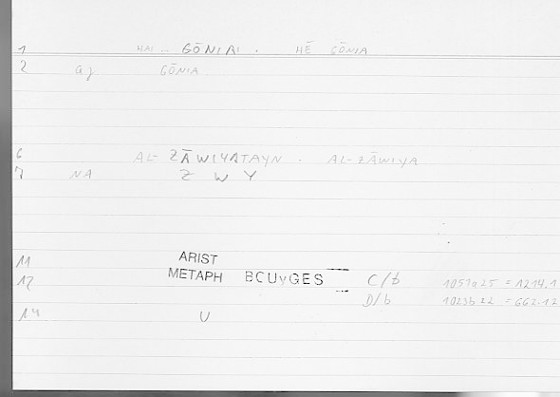 1 HAI ... GŌNIAI . HĒ GŌNIA
2 aj GŌNIA
6 AL-ZĀWIYATAYN . AL-ZĀWIYA
7 NA Z W Y
11 ARIST
12 METAPH BCUyGES C/b 1051a25 = 1214.1
D/b 1023b22 = 662.12
14 U